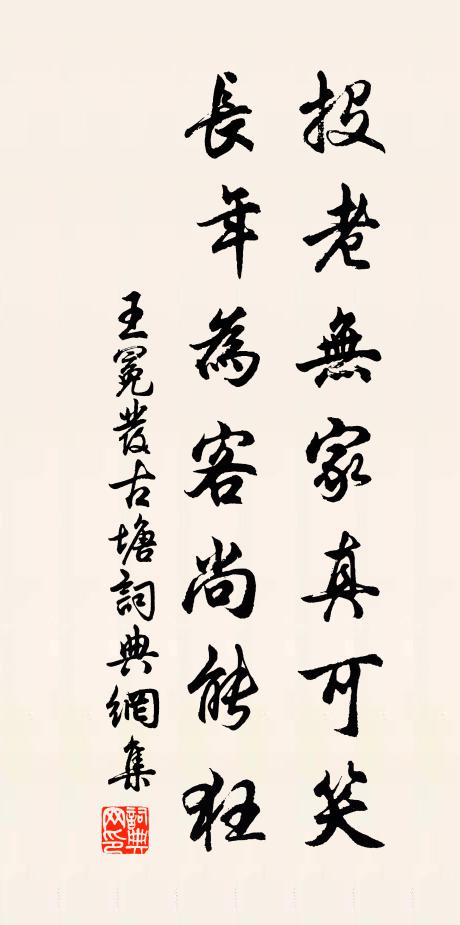 投老無家真可笑
長年為客尚能狂
王冕發古塘詞典網集
詞典
网印